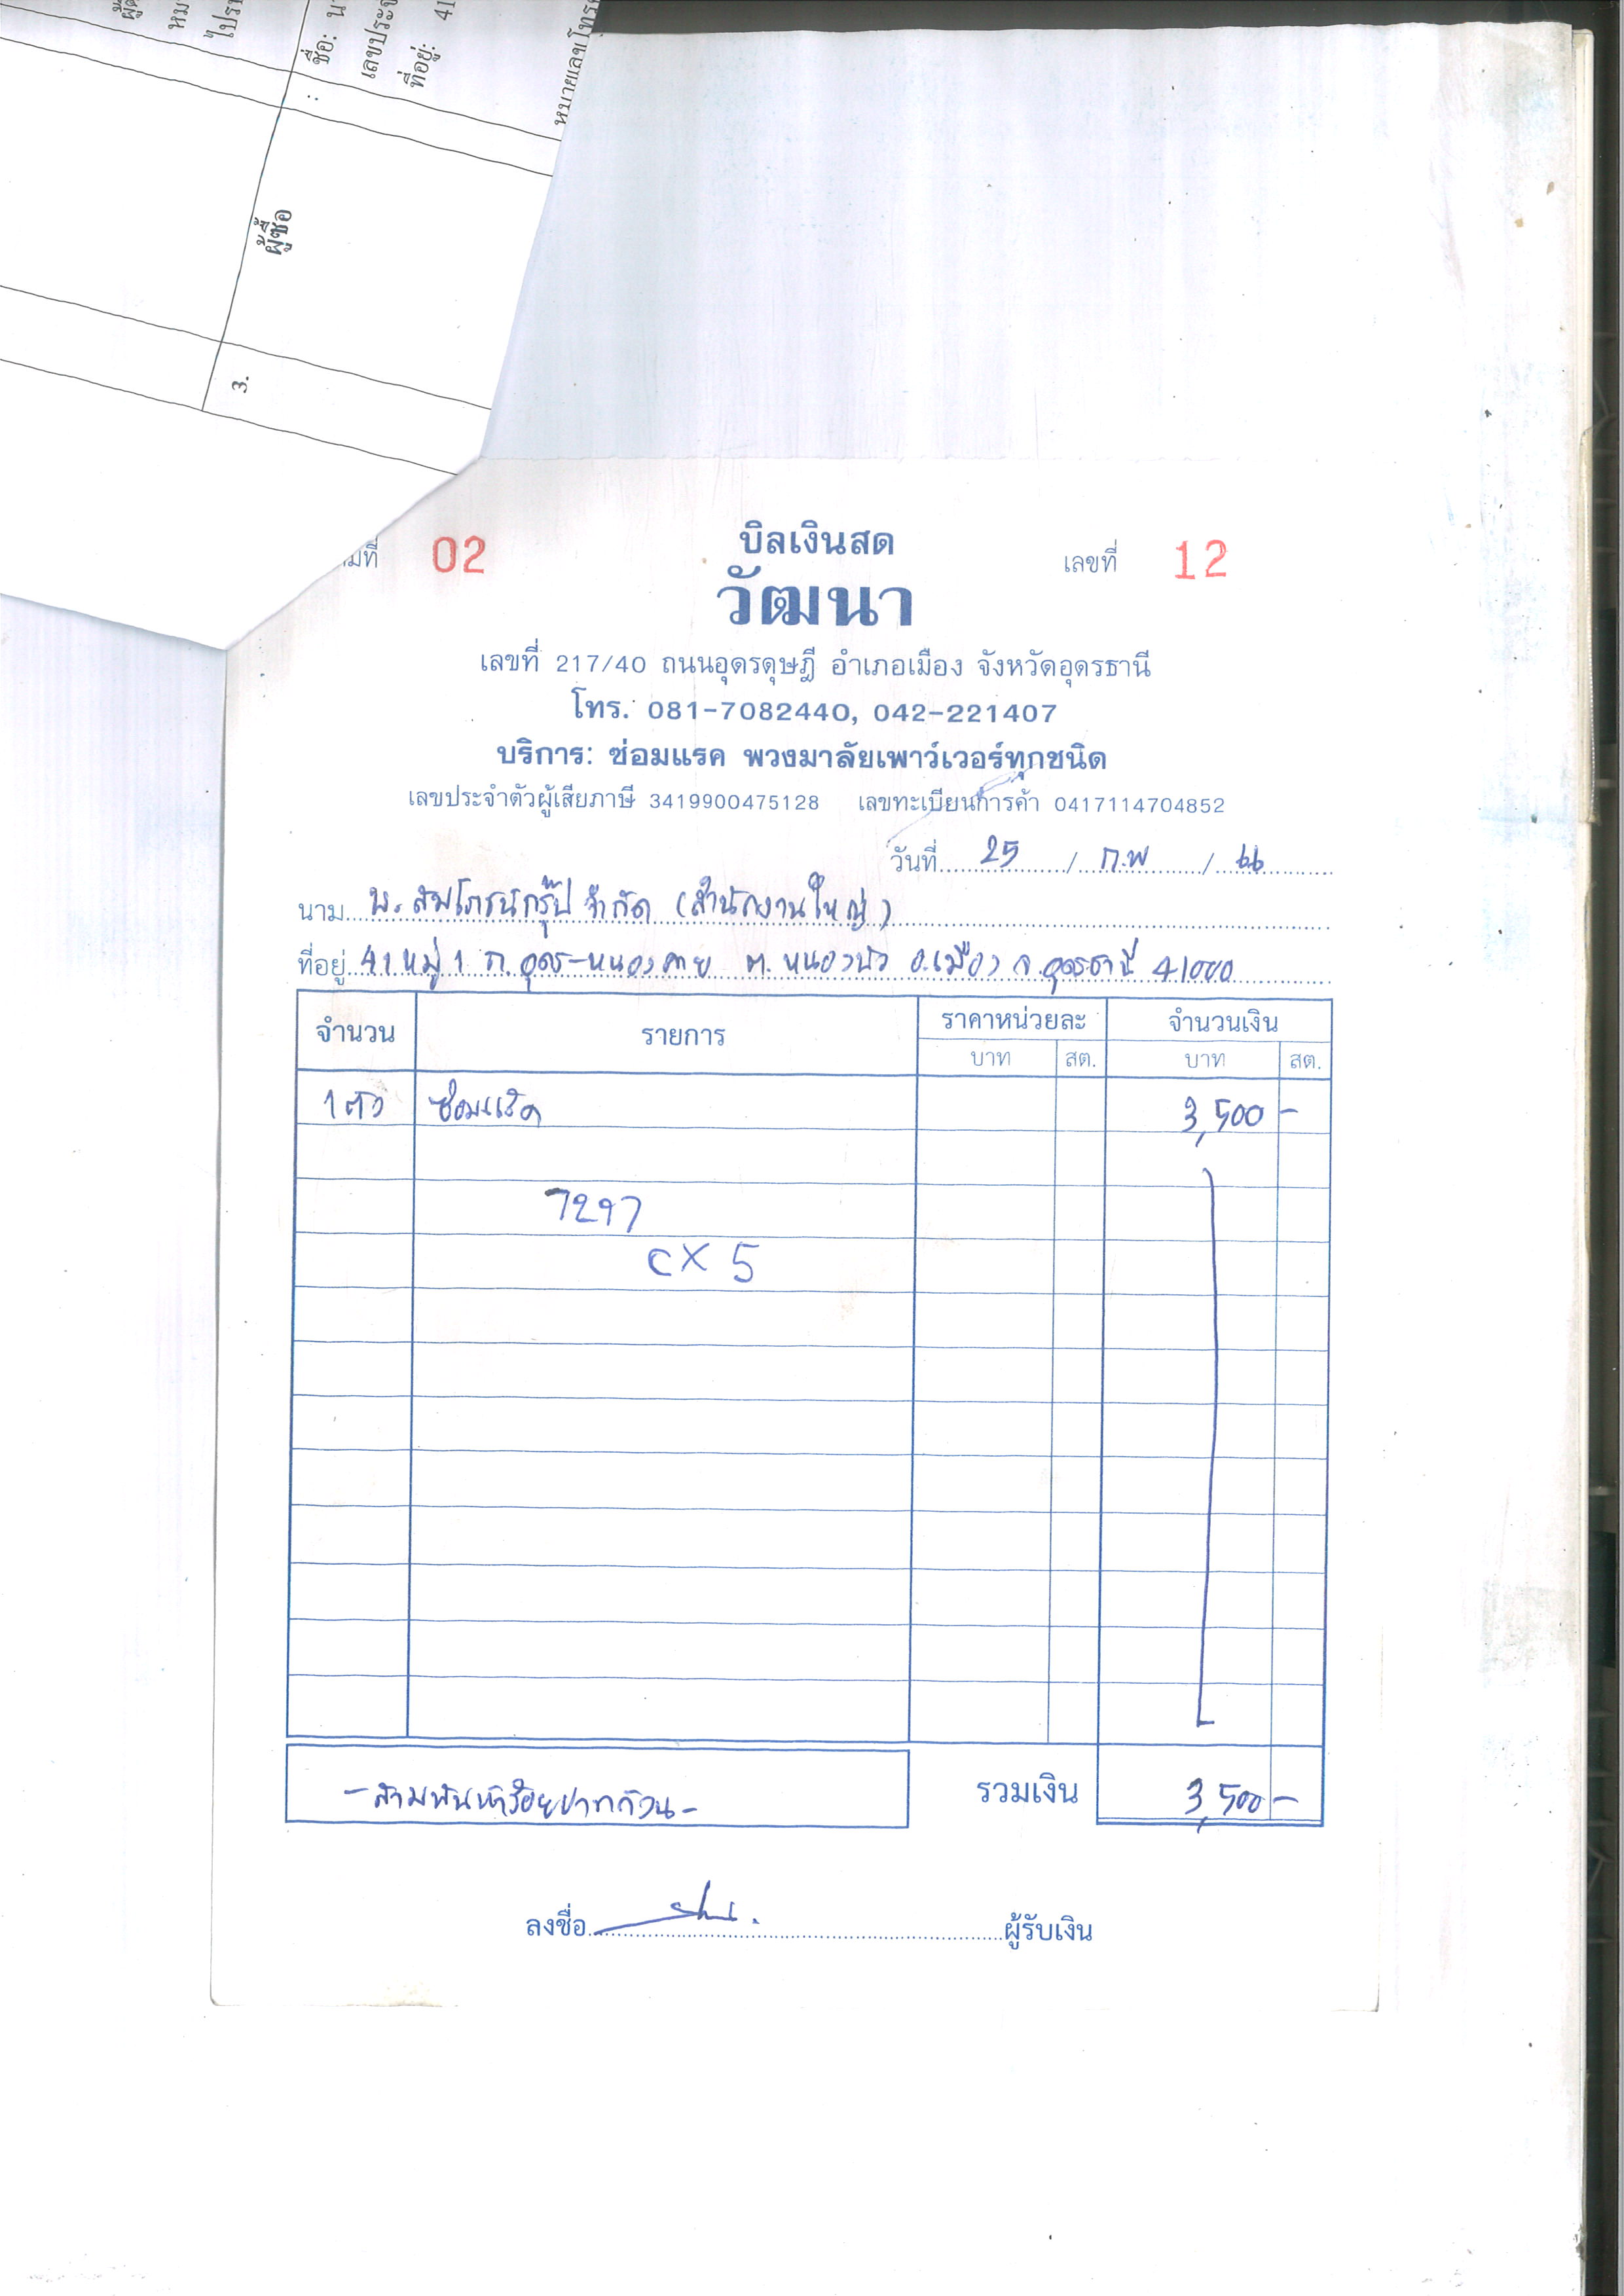 ชื่อ:
ที่อยู่: 41
ผู้ซื้อ
3.
บิลเงินสด
02
เลขที่ 12
วัฒนา
เลขที่ 217/40 ถนนอุดรดุษฎี อำเภอเมือง จังหวัดอุดรธานี
โทร. 081-7082440, 042-221407
บริการ: ซ่อมแรค พวงมาลัยเพาว์เวอร์ทุกชนิด
เลขประจำตัวผู้เสียภาษี 3419900475128 เลขทะเบียนการค้า 0417114704852
วันที่ 25 / ก.พ / 66
นาม บ. สัมโภชน์กรุ๊ป จำกัด (สำนักงานใหญ่)
ที่อยู่ 41 หมู่ 1 ถ. อุดร-หนองคาย ต. หนองบัว อ.เมือง จ. อุดรธานี 41000
จำนวน รายการ ราคาหน่วยละ จำนวนเงิน
บาท สต. บาท สต.
1 ตัว ซ่อมแร็ค 3,500 -
7297
CX 5
- สามพันห้าร้อยบาทถ้วน - รวมเงิน 3,500 -
ลงชื่อ ผู้รับเงิน